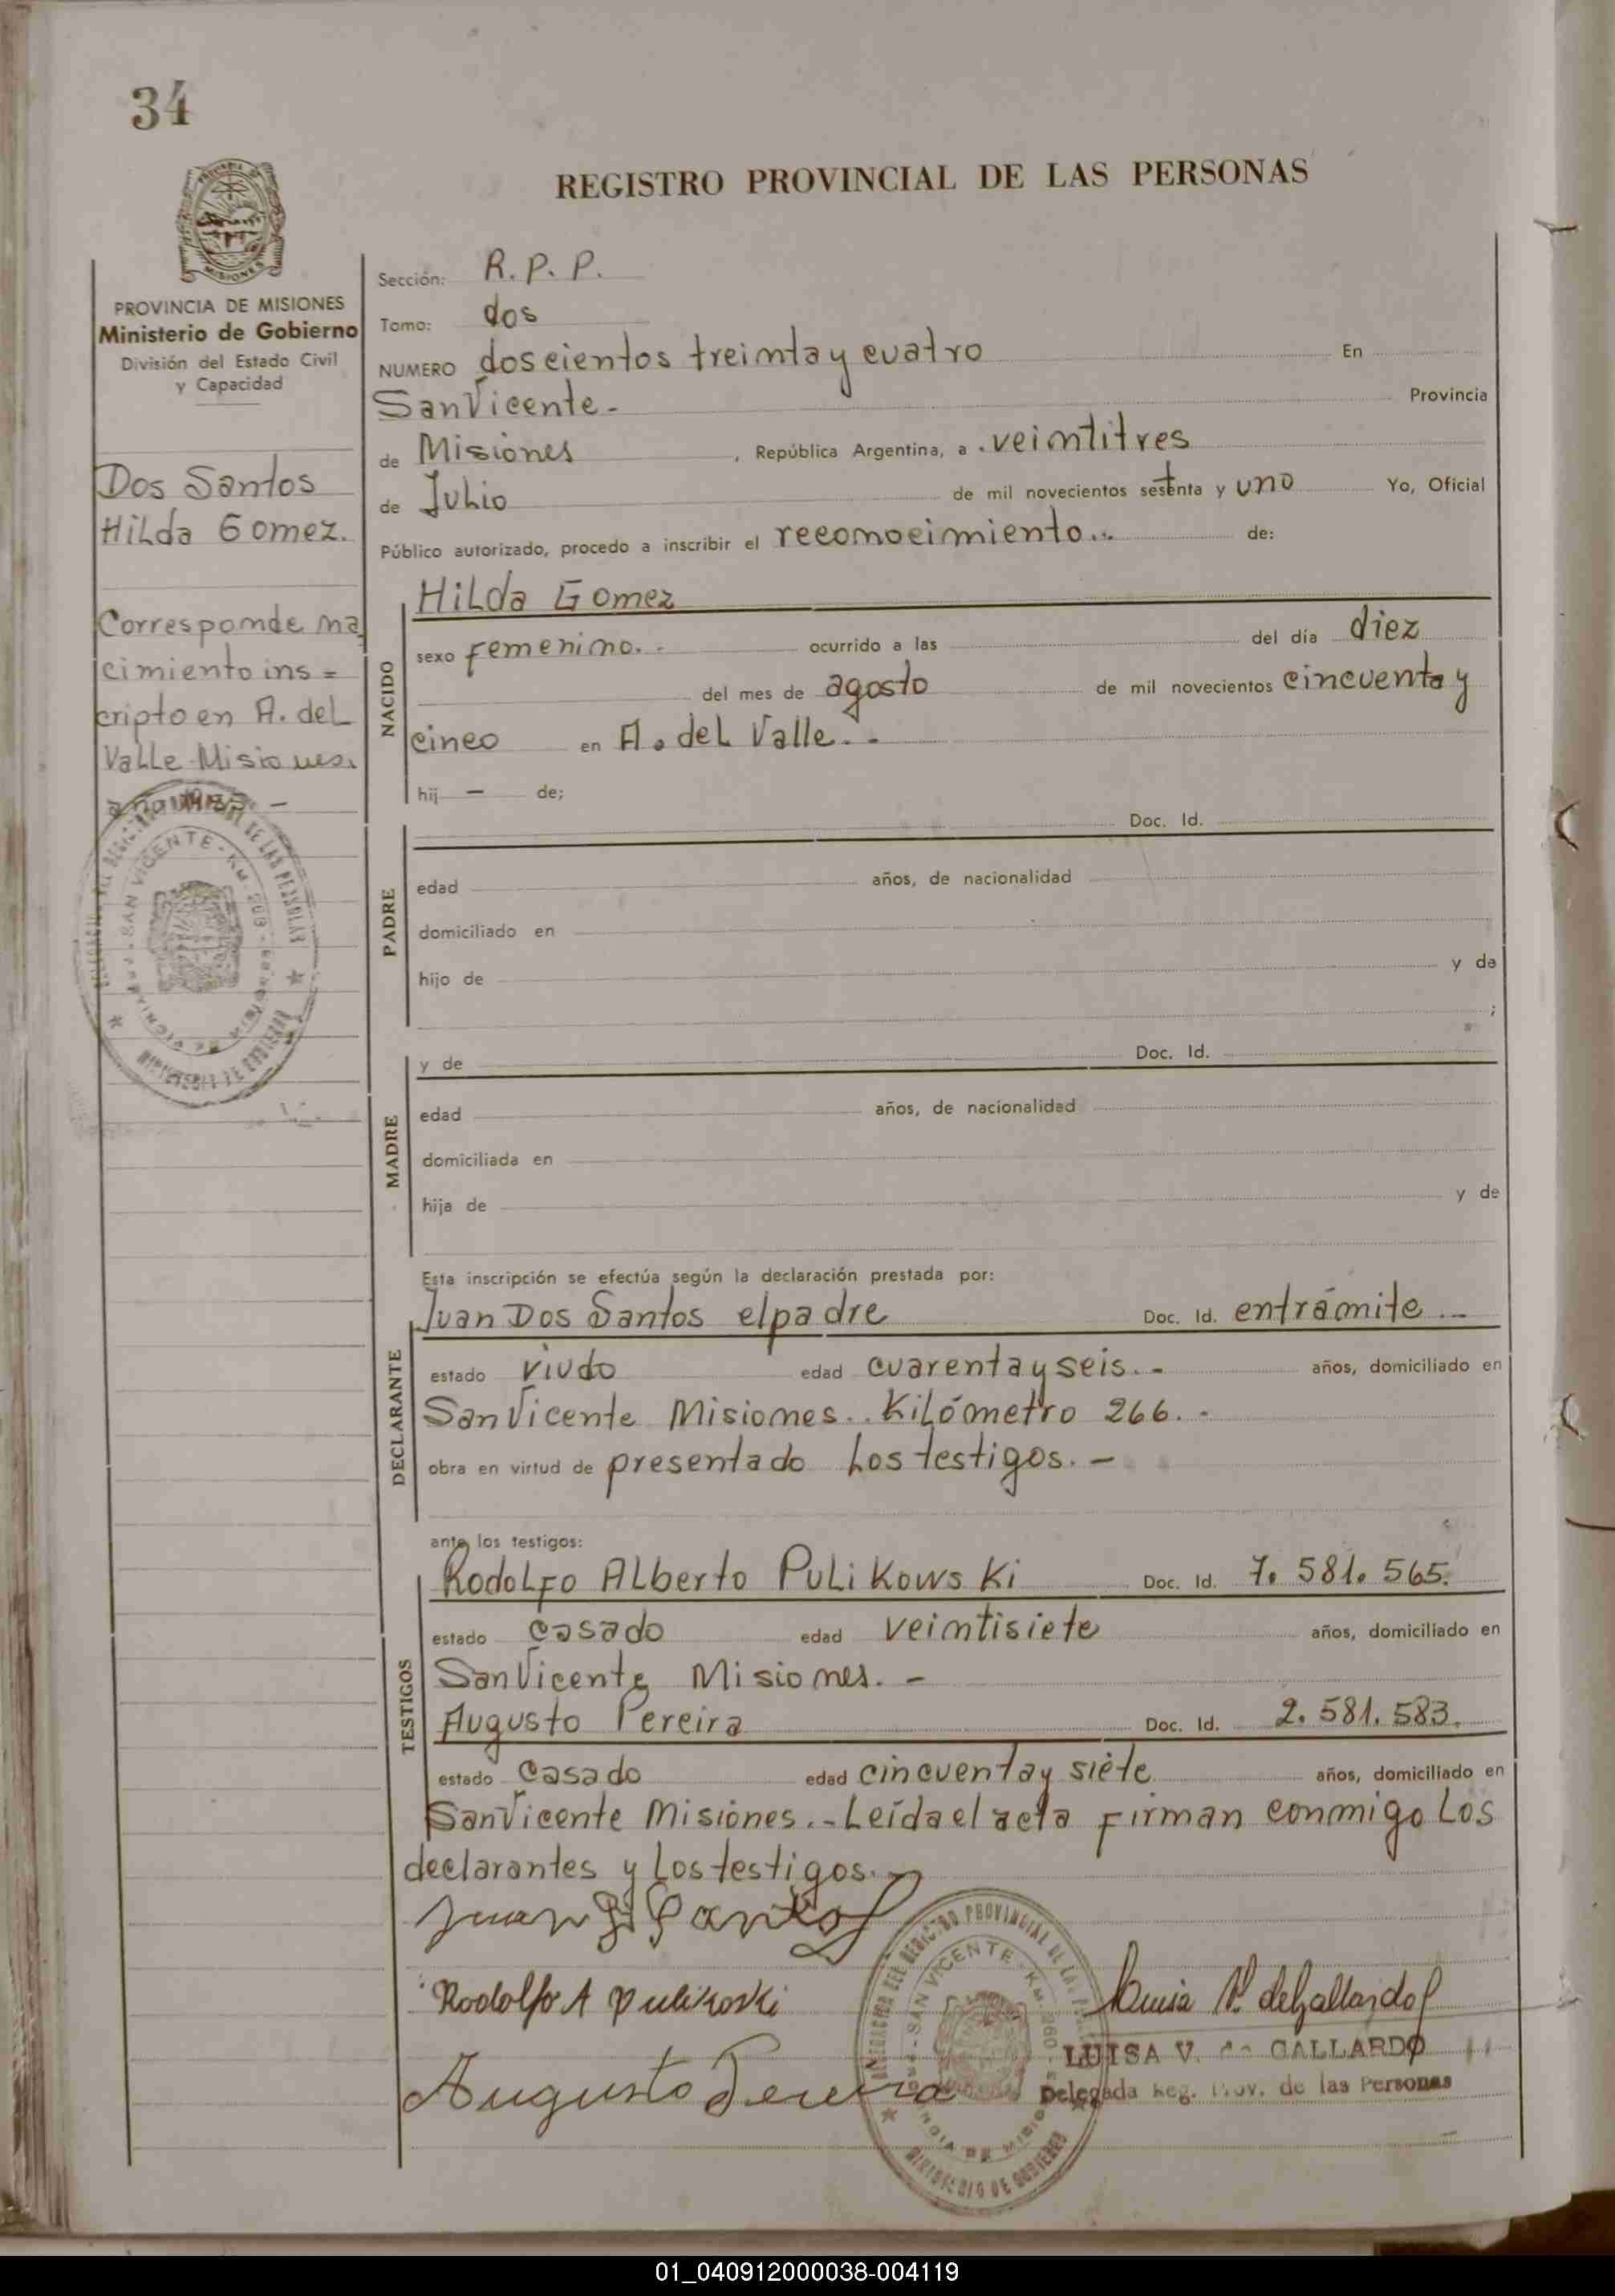 34
REGISTRO PROVINCIAL DE LAS PERSONAS
MISIONES
PROVINCIA DE MISIONES
Ministerio de Gobierno
División del Estado Civil
y Capacidad
Dos Santos
Hilda Gomez.
Corresponde na
cimiento ins =
cripto en A. del
Valle Misiones.
Sección: R. P. P.
Tomo: dos
NUMERO doscientos treinta y cuatro En
San Vicente - Provincia
de Misiones, República Argentina, a veintitres
de Julio de mil novecientos setenta y uno Yo, Oficial
Público autorizado, procedo a inscribir el reconocimiento... de:
NACIDO
Hilda Gomez
sexo femenino. - ocurrido a las del día diez
del mes de agosto de mil novecientos cincuenta y
cinco en A. del Valle. -
hij — de;
PADRE
Doc. Id.
edad años, de nacionalidad
domiciliado en
hijo de y de
;
MADRE
y de Doc. Id.
edad años, de nacionalidad
domiciliada en
hija de y de
Esta inscripción se efectúa según la declaración prestada por:
DECLARANTE
Juan Dos Santos el padre Doc. Id. en trámite --
estado viudo edad cuarenta y seis. - años, domiciliado en
San Vicente Misiones. Kilómetro 266. -
obra en virtud de presentado los testigos. -
ante los testigos:
TESTIGOS
Rodolfo Alberto Pulikowski Doc. Id. 7. 581. 565.
estado casado edad veintisiete años, domiciliado en
San Vicente Misiones. -
Augusto Pereira Doc. Id. 2. 581. 583.
estado casado edad cincuenta y siete años, domiciliado en
San Vicente Misiones. - Leída el acta firman conmigo los
declarantes y los testigos. -
Rodolfo A Pulikoski
Luisa V. de Gallardo
LUISA V. de GALLARDO
Delegada Reg. Prov. de las Personas
Augusto Pereira
DELEGACION DEL REGISTRO PROVINCIAL DE LAS PERSONAS
SAN VICENTE - KM. 260
PROVINCIA DE MISIONES
MINISTERIO DE GOBIERNO
01_040912000038-004119